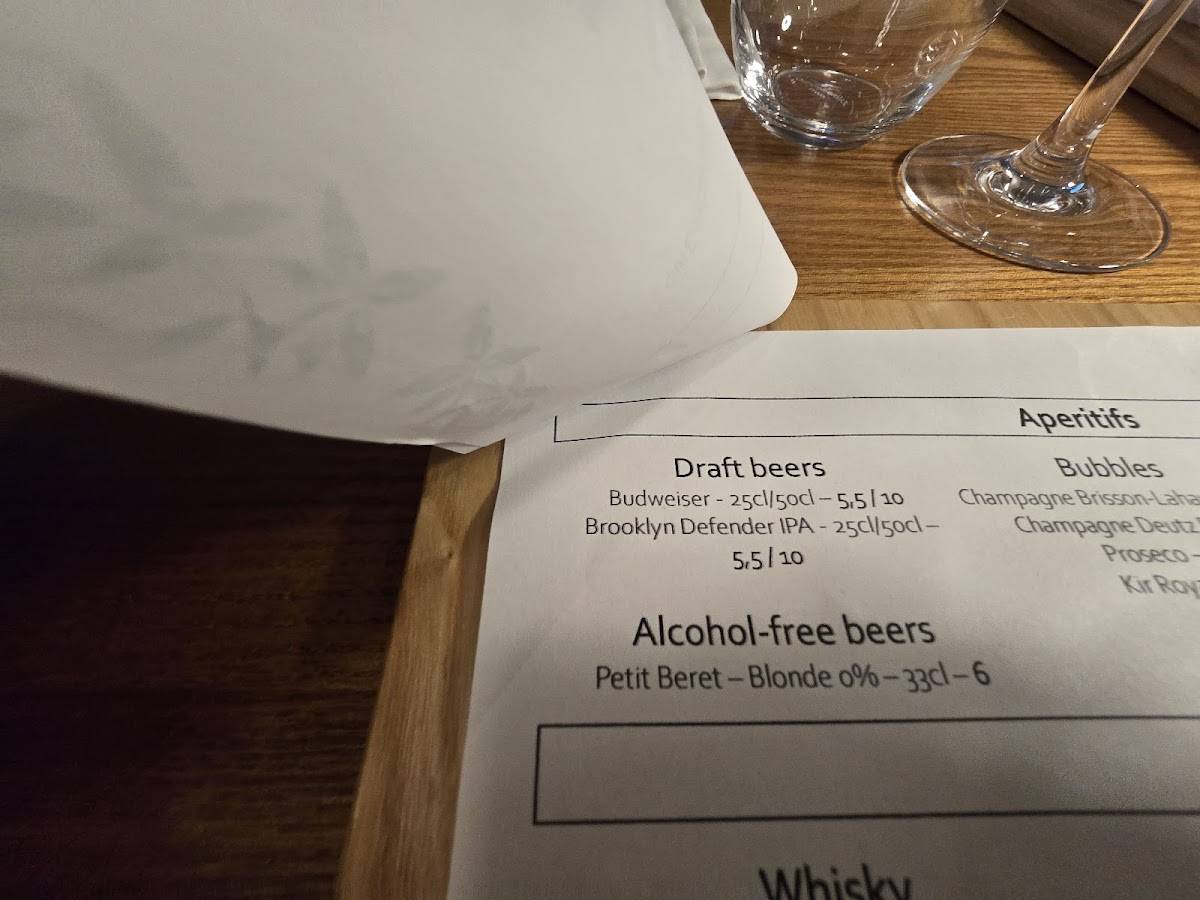 Aperitifs
Draft beers
Budweiser - 25cl/50cl – 5,5 / 10
Brooklyn Defender IPA - 25cl/50cl –
5,5 / 10
Alcohol-free beers
Petit Beret – Blonde 0% – 33cl – 6
Bubbles
Champagne Brisson-Laha
Champagne Deutz
Proseco –
Kir Roy
Whisky